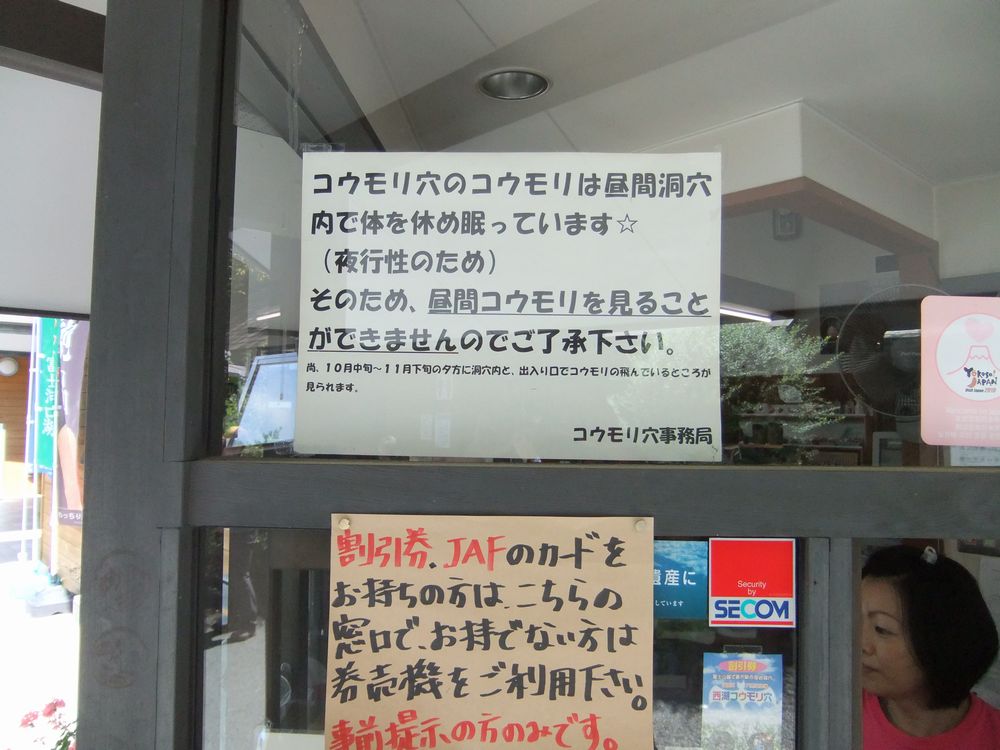 コウモリ穴のコウモリは昼間洞穴
内で体を休め眠っています☆
（夜行性のため）
そのため、昼間コウモリを見ること
ができませんのでご了承下さい。
尚、１０月中旬～１１月下旬の夕方に洞穴内と、出入り口でコウモリの飛んでいるところが
見られます。
コウモリ穴事務局
割引券、JAFのカードを
お持ちの方は、こちらの
窓口で、お持でない方は
券売機をご利用下さい。
事前提示の方のみです。
遺産に
しています
Security
by
SECOM
割引券
西湖コウモリ穴
YOKOSO!
JAPAN